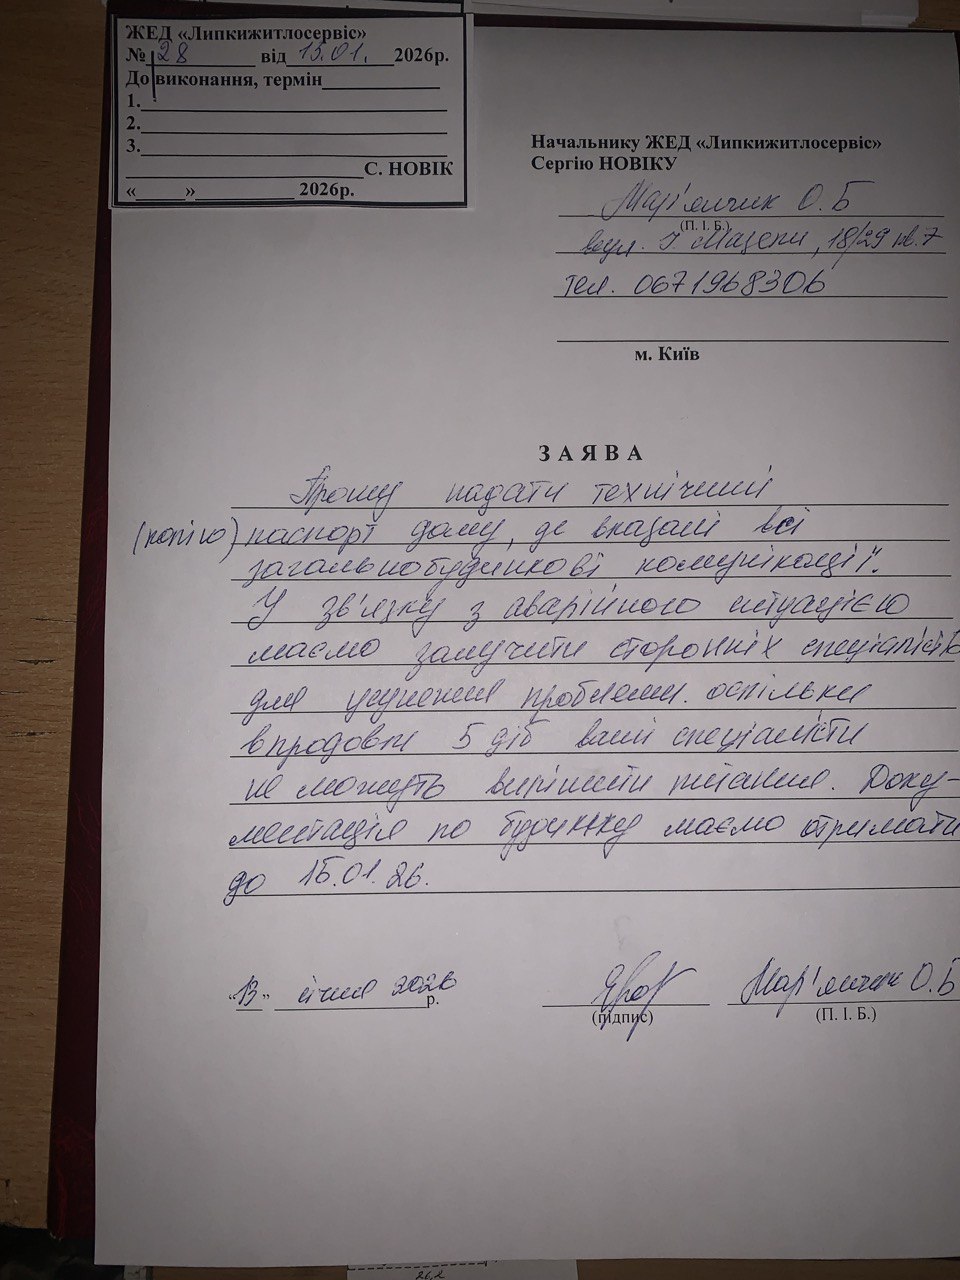 ЖЕД «Липкижитлосервіс»
№ 28 від 15.01. 2026р.
До виконання, термін
1.
2.
3.
С. НОВІК
« » 2026р.
Начальнику ЖЕД «Липкижитлосервіс»
Сергію НОВІКУ
Мар'янчик О.Б
(П. І. Б.)
вул. І Мазепи, 18/29 кв.7
тел. 0671968306
м. Київ
ЗАЯВА
Прошу надати технічний
(копію) паспорт дому, де вказані всі
загальнобудинкові комунікації.
У зв'язку з аварійного ситуацією
маємо залучити сторонніх спеціалістів
для усунення проблеми. оскільки
впродовж 5 діб ваші спеціалісти
не можуть вирішити питання. Доку-
ментація по будинку маємо отримати
до 15.01.26.
"13" січня 2026 р.
Мар'янчик О.Б
(підпис) (П. І. Б.)
26,2